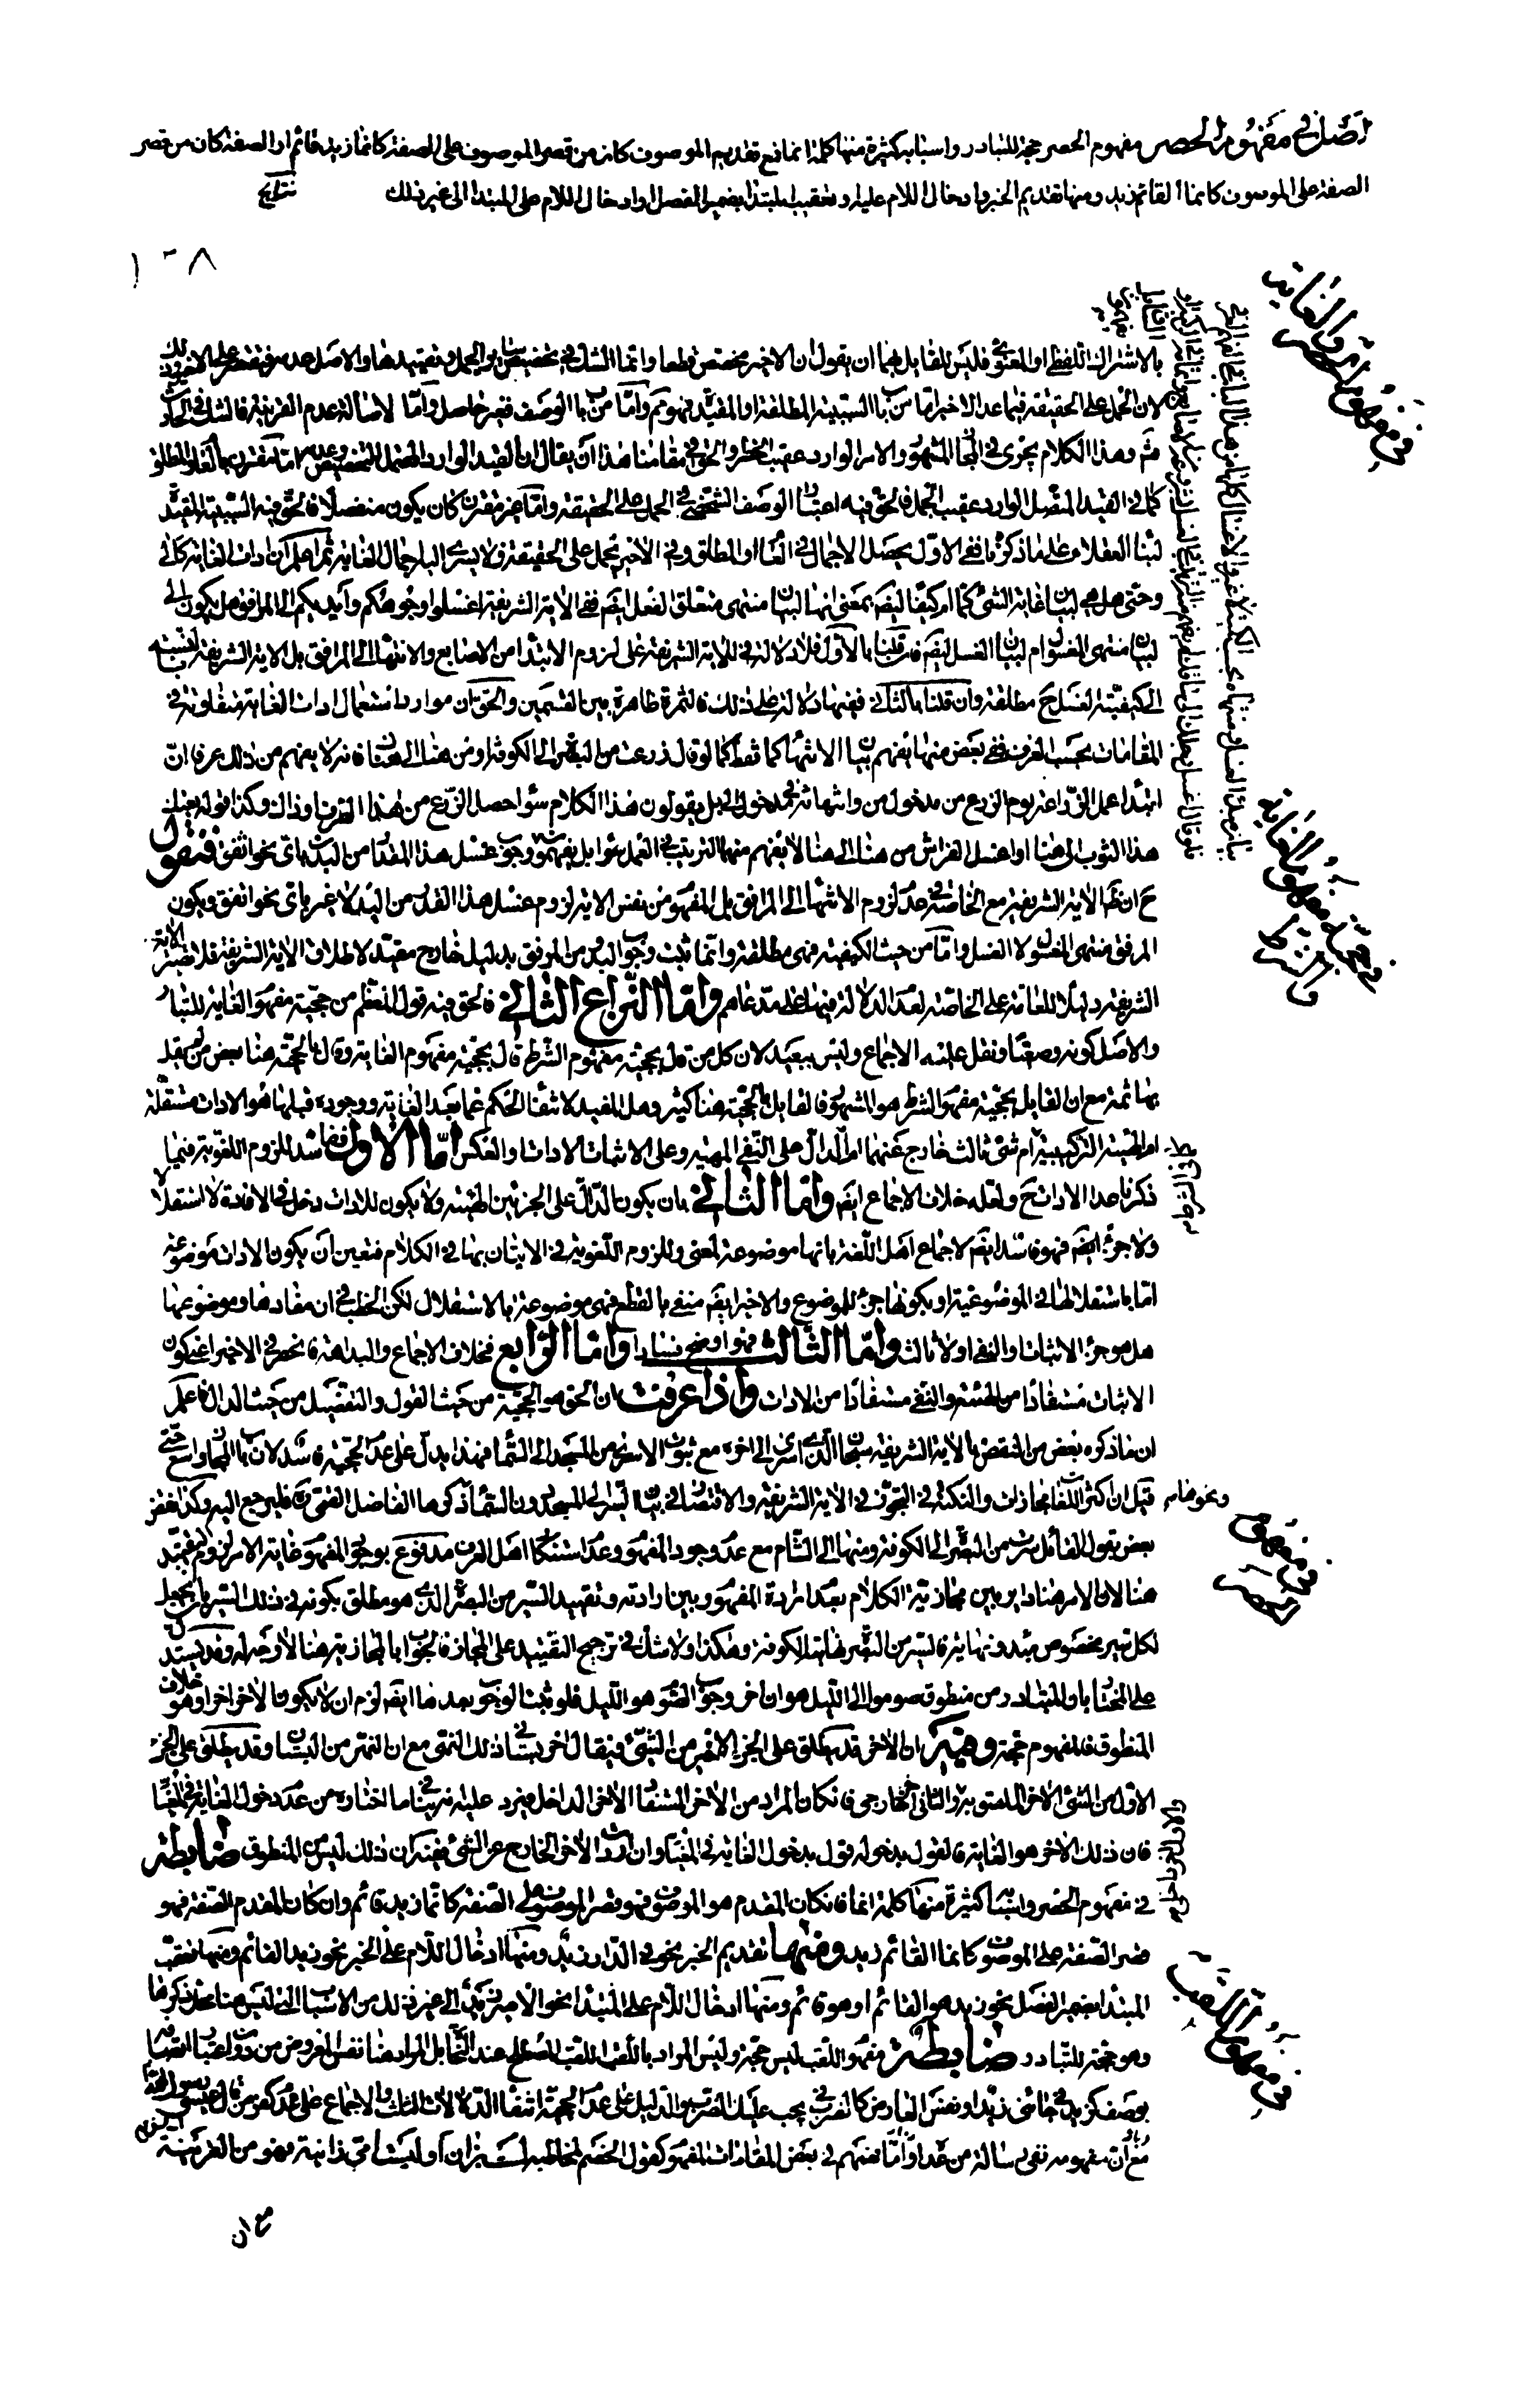 اصل في مفهوم الحصر مفهوم الحصر حجة للتبادر واسبابه كثيرة منها كلمة انما فمع تقديم الموصوف كان من قصر الموصوف على الصفة كانما زيد قائم او الصفة كان من قصر
الصفة على الموصوف كانما القائم زيد ومنها تقديم الخبر وادخال اللام عليه وتعقيب المبتدا بضمير الفصل او ادخال اللام على المبتدا الى غير ذلك نتايج
١٣٨
في مفهوم الغاية والحصر
بالاشتراك اللفظي او المعنوي فليس للقايل بهما ان يقول ان الاخير مخصص قطعا وانما الشك في تخصيص بواقي الجمل وتقييدها والاصل عدمه فيقتصر على الاخير
لان الحمل على الحقيقة فيما عدا الاخير اما من باب السببية المطلقة او المقيدة فهو ثم واما من باب الوصف فغير حاصل واما لاصالة عدم القرينة فالشك في الحادث
ثم وهذا الكلام يجري في المجاز المشهور والامر الوارد عقيب الحظر والحق في مقامنا هذا ان يقال ان القيد الوارد المحتمل للتخصيص وعدمه اما مقترن بالعام والمطلق
كما في القيد المتصل الوارد عقيب الجمل فالحق فيه اعتبار الوصف الشخصي في الحمل على الحقيقة واما غير مقترن كان يكون منفصلا فالحق فيه السببية المقيدة
لبناء العقلاء على ما ذكرنا ففي الاول يحصل الاجمال في العام او المطلق وفي الاخير نحمل على الحقيقة ولا يسري اليه اجمال الغاية ثم اعلم ان ادات الغاية كالى
وحتى هل هي لبيان غاية الشيء كما او كيفا ايضا بمعنى انها لبيان منتهى متعلق الفعل ايضا ففي الاية الشريفة اغسلوا وجوهكم وايديكم الى المرافق هل يكون الى
لبيان منتهى المغسول ام لبيان الغسل ايضا فان قلنا بالاول فلا دلالة في الاية الشريفة على لزوم الابتداء من الاصابع والانتهاء الى المرافق بل الاية الشريفة بالنسبة
الى كيفية الغسل ح مطلقة وان قلنا بالثاني ففيها دلالة على ذلك فالثمرة ظاهرة بين القسمين والحق ان موارد استعمال ادات الغاية متفاوتة في
المقامات بحسب العرف ففي بعض منها يفهم بيان الانتهاء كما فقط كما لو قال ذرعت من البصرة الى الكوفة او من هنا الى هنا فانه لا يفهم من ذلك عرفا ان
ابتداء عمل الذراع يوم الذرع من مدخول من وانتهائه في مدخول الى بل يقولون هذا الكلام سواء حصل الذرع من هذا الطرف او ذاك وكذا قوله
هذا الثوب الى هنا او اغسل الفراش من هنا الى هنا لا يفهم منهما الترتيب في العمل بل يفهم وجوب غسل هذا المقدار من البدن باي نحو اتفق فنقول
ح ان ظاهر الاية الشريفة مع الخاصة في عدم لزوم الانتهاء الى المرافق بل المفهوم من نفس الاية لزوم غسل هذا القدر من اليد لا غير باي نحو اتفق ويكون
المرفق منتهى المغسول لا الغسل واما من حيث الكيفية فهي مطلقة وانما ثبت وجوب البدء من المرفق بدليل خارج مقيد لاطلاق الاية الشريفة فلا تصير الاية
الشريفة دليلا للعامة على الخاصة لعدم الدلالة فيها على مدعاهم واما النزاع الثاني فالحق فيه قول المعظم من حجية مفهوم الغاية للتبادر
والاصل كونه وضعيا ونقل عليه الاجماع وليس ببعيد لان كل من قال بحجية مفهوم الشرط قال بحجية مفهوم الغاية وقال بالحجية هنا بعض من لم يقل
بها ثمة مع ان القايل بحجية مفهوم الشرط هو المشهور فالقايل بالحجية هنا كثير وهل المفيد لانتفاء الحكم عما بعد الغاية ووجوده قبلها هو الادات مستقلة
او الهيئة التركيبية ام شيء ثالث خارج عنهما او الدال على النفي الهيئة وعلى الاثبات الادات او العكس اما الاول ففاسد للزوم اللغوية فيما
ذكرنا عدا الادات ح ولعله خلاف الاجماع ايضا واما الثاني بان يكون الدال على الجزئين الهيئة ولا يكون للادات دخل في الافادة لا استقلالا
ولا جزء ايضا فهو فاسد ايضا لاجماع اهل اللغة بانها موضوعة لمعنى وللزوم اللغوية في الاتيان بها في الكلام فتعين ان يكون الادات موضوعة
اما باستقلالها في الموضوعية او بكونها جزء للموضوع والاخير ايضا منفي بالقطع فهي موضوعة بالاستقلال لكن الخطب في ان مفادها وموضوعها
هل هو جزء الاثبات او النفي اولا ثالث واما الثالث فهو اوضح فسادا واما الرابع فخلاف الاجماع والبداهة فانحصر في الاخير اعني كون
الاثبات مستفادا من الهيئة والنفي مستفادا من الادات واذا عرفت ان الحق هو الحجية من حيث القول والتفصيل من حيث الدال فاعلم
ان ما ذكره بعض من النقض بالاية الشريفة سبحان الذي اسرى الى اخره مع ثبوت الاسراء من المسجد الى السماء فهذا يدل على عدم الحجية فاسد لان باب المجاز واسع حتى
قيل ان اكثر اللغات مجازات والنكتة في التجوز في الاية الشريفة والاقتصار في بيان السير الى المسجد دون السماء ذكرها الفاضل القمي ره فليرجع اليه وكذا نقض
بعض بقول القائل سرت من البصرة الى الكوفة ومنها الى الشام مع عدم وجود المفهوم وعدم استنكار اهل العرف مدفوع بوجود المفهوم غاية الامر لزوم التقييد
هنا لان الامر هنا داير بين مجازية الكلام بعدم ارادة المفهوم وبين ارادته وتقييد السير من البصرة الذي هو مطلق بكونه في ذلك السير بان يجعل
لكل سير بخصوص مبدء ونهاية فالسير من البصرة نهايته الكوفة وهكذا ولا شك في ترجيح التقييد على المجاز فالجواب بالمجازية هنا لا وجه له وقد يستدل
على المختار بان المتبادر من منطوق صوموا الى الليل هو ان اخر وجوب الصوم هو الليل فلو ثبت الوجوب بعدها ايضا لزم ان لا يكون الاخر اخرا وهو خلاف
المنطوق فالمفهوم حجة وفيه ان الاخر قد يطلق على الجزء الاخير من الشيء فيقال اخر بستان ذلك النهي مع ان التمر من البستان وقد يطلق على الجزء
الاول من الشيء الاخر الملصق به والثاني الخارجي فان كان المراد من الاخر المستفاد الاخر الداخل فيرد عليه انه ينافي ما اختاره من عدم دخول الغاية في المغيا
فان ذلك الاخر هو الغاية فالقول بدخوله قول بدخول الغاية في المغيا وان اراد الاخر الخارج عن الشيء ففيه ان ذلك ليس من المنطوق ضابطة
في مفهوم الحصر واسبابه كثيرة منها كلمة انما فان كان المقدم هو الموصوف فهو قصر الموصوف على الصفة كانما زيد قائم وان كان المقدم الصفة فهو
قصر الصفة على الموصوف كانما القائم زيد ومنها تقديم الخبر نحو في الدار زيد ومنها ادخال اللام على الخبر نحو زيد القائم ومنها تعقيب
المبتدا بضمير الفصل نحو زيد هو القائم او هو قائم ومنها ادخال اللام على المبتدا نحو الامير زيد الى غير ذلك من الاسباب التي ليس هنا محل ذكرها
وهو حجة للتبادر ضابطة مفهوم اللقب ليس حجة وليس المراد باللقب اللقب المصطلح عند النحاة بل المراد هنا نفس المعروض من دون اعتبار اتصافه
بوصف كزيد في جائني زيد او نفس العارض كالضرب في يجب عليك الضرب والدليل على عدم الحجية انتفاء الدلالات الثلث والاجماع على عدم كفر من قال عيسى رسول الله
مع ان مفهومه نفي رسالة من عداه واما تفهيم في بعض المقامات المفهوم كقول الخصم لمخاطبه لست بزان او ليست امي زانية فهو من القرينة
مع ان
في حجية مفهوم الغاية والشرط
في مفهوم الحصر
في مفهوم اللقب
ونحوهما